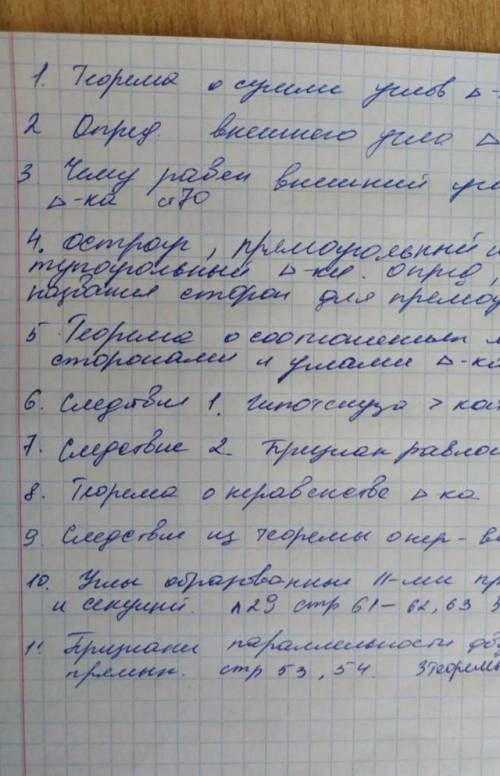 1. Теорема о сумме углов Δ-
2 Опред. внешнего угла Δ
3 Чему равен внешний уг
Δ-ка с170
4. остроуг, прямоугольный и
тупоугольный Δ-ки. опред,
названия сторон для прямоу
5 Теорема о соотношениях м
сторонами и углами Δ-ка
6. Следствие 1. гипотенуза > ка
7. Следствие 2. Признак равно
8. Теорема о неравенстве Δ-ка
9. Следствие из теоремы о нер-в
10. Углы образованные II-ми пр
и секущей. п29 стр 61-62, 63
11 Признаки параллельности
прямых. стр 53, 54. 3 теоремы